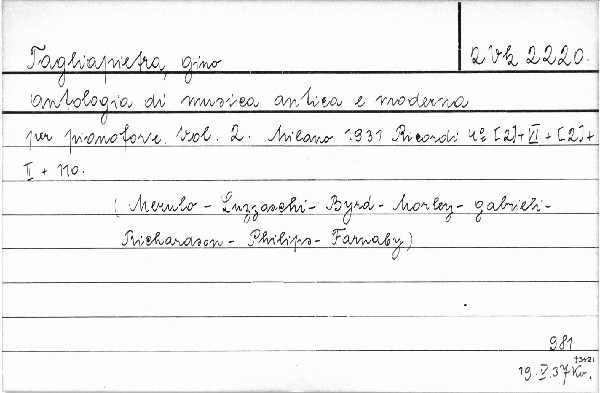 Tagliapietra, gino
2 Vh 2220.
antologia di musica antica e moderna
per pianoforte. Vol. 2. Milano 1931 Ricordi 4º [2]+VI+[2]+
II + 110.
(Merulo - Luzzaschi - Byrd - Morley - gabrieli -
Richardson - Philips - Farnaby)
981
+3421
19. V. 37 Kv.